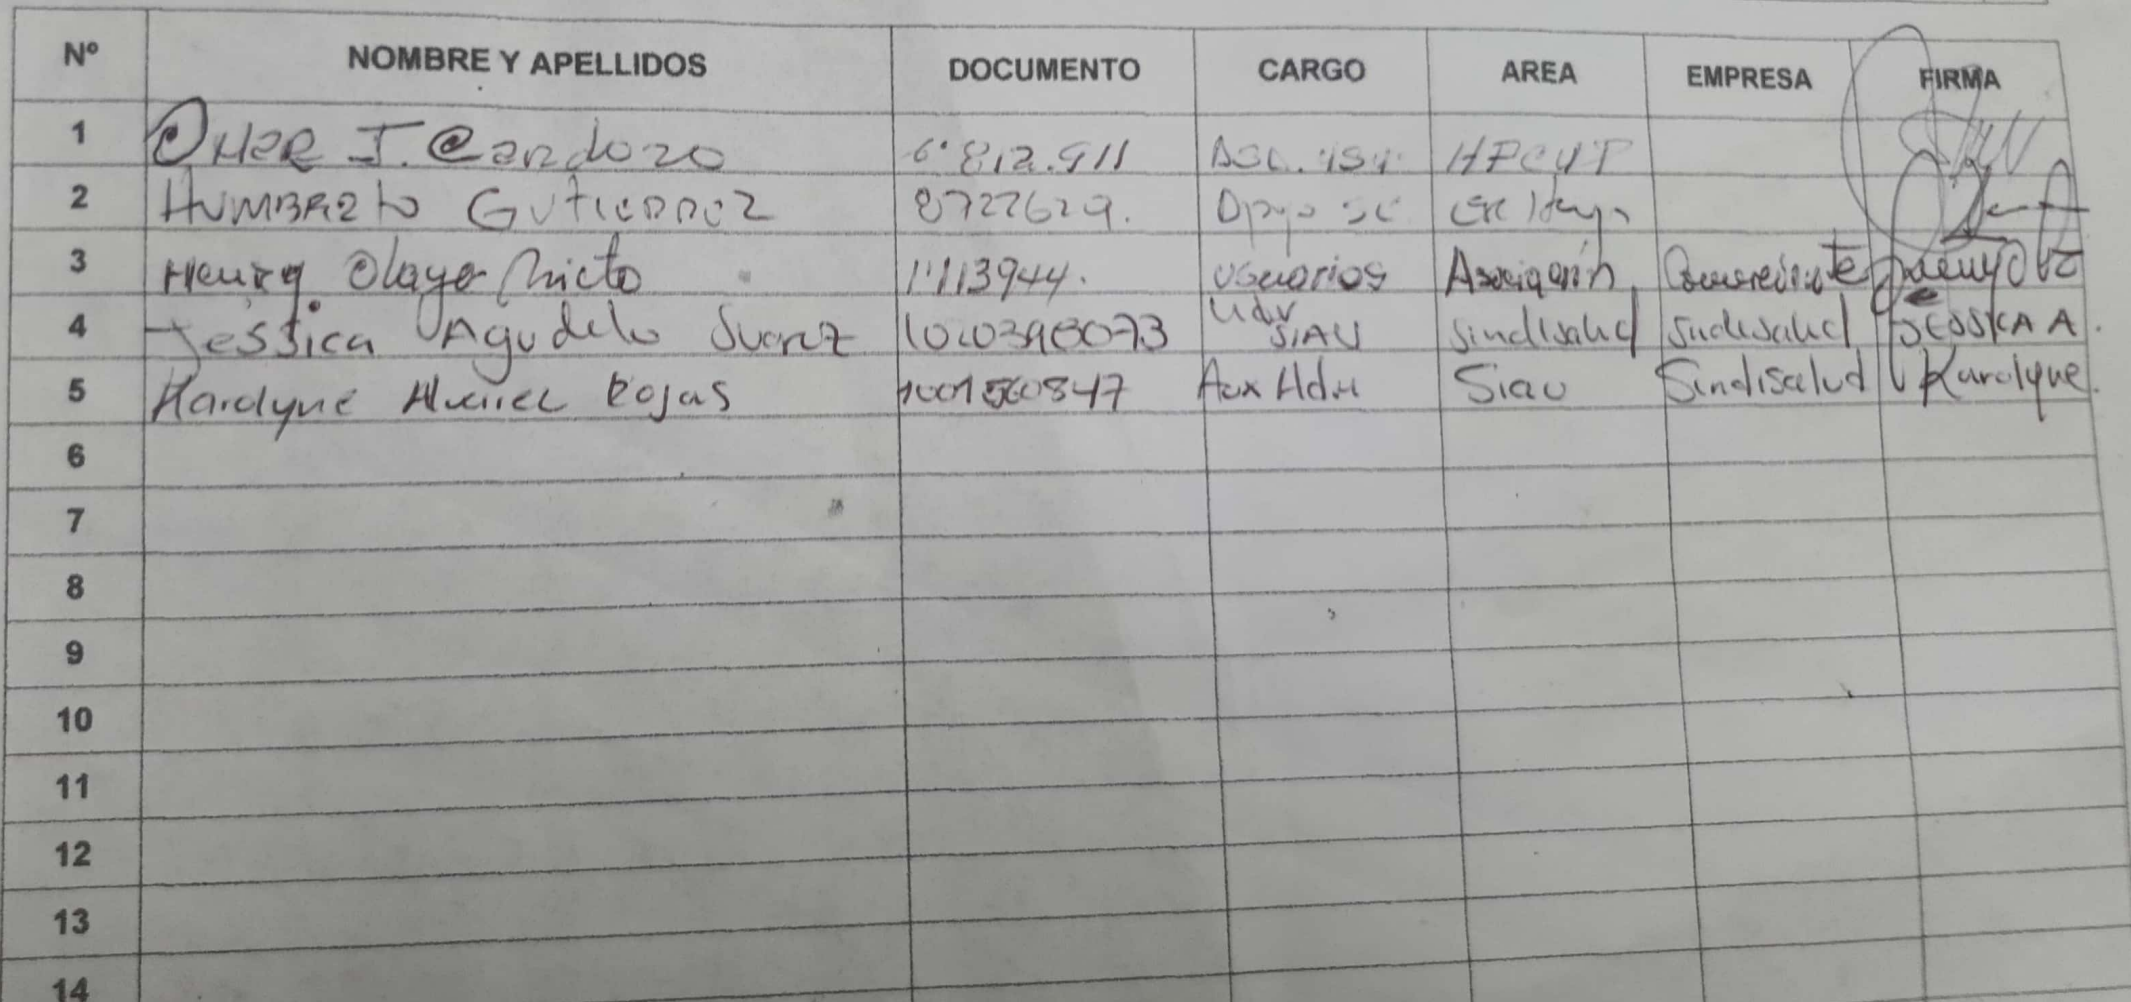 Nº NOMBRE Y APELLIDOS DOCUMENTO CARGO AREA EMPRESA FIRMA
1 OMER J. Cardozo 6.812.911
2 HUMBERTO GUTIERREZ 8727629.
3 Henry Olaya Nieto 1'113944. Usuarios Asociación
4 Jessica Agudelo Suarez SIAU Sindisalud Sindisalud JESSICA A.
5 Rojas Aux Siau Sindisalud Karolyne
6
7
8
9
10
11
12
13
14